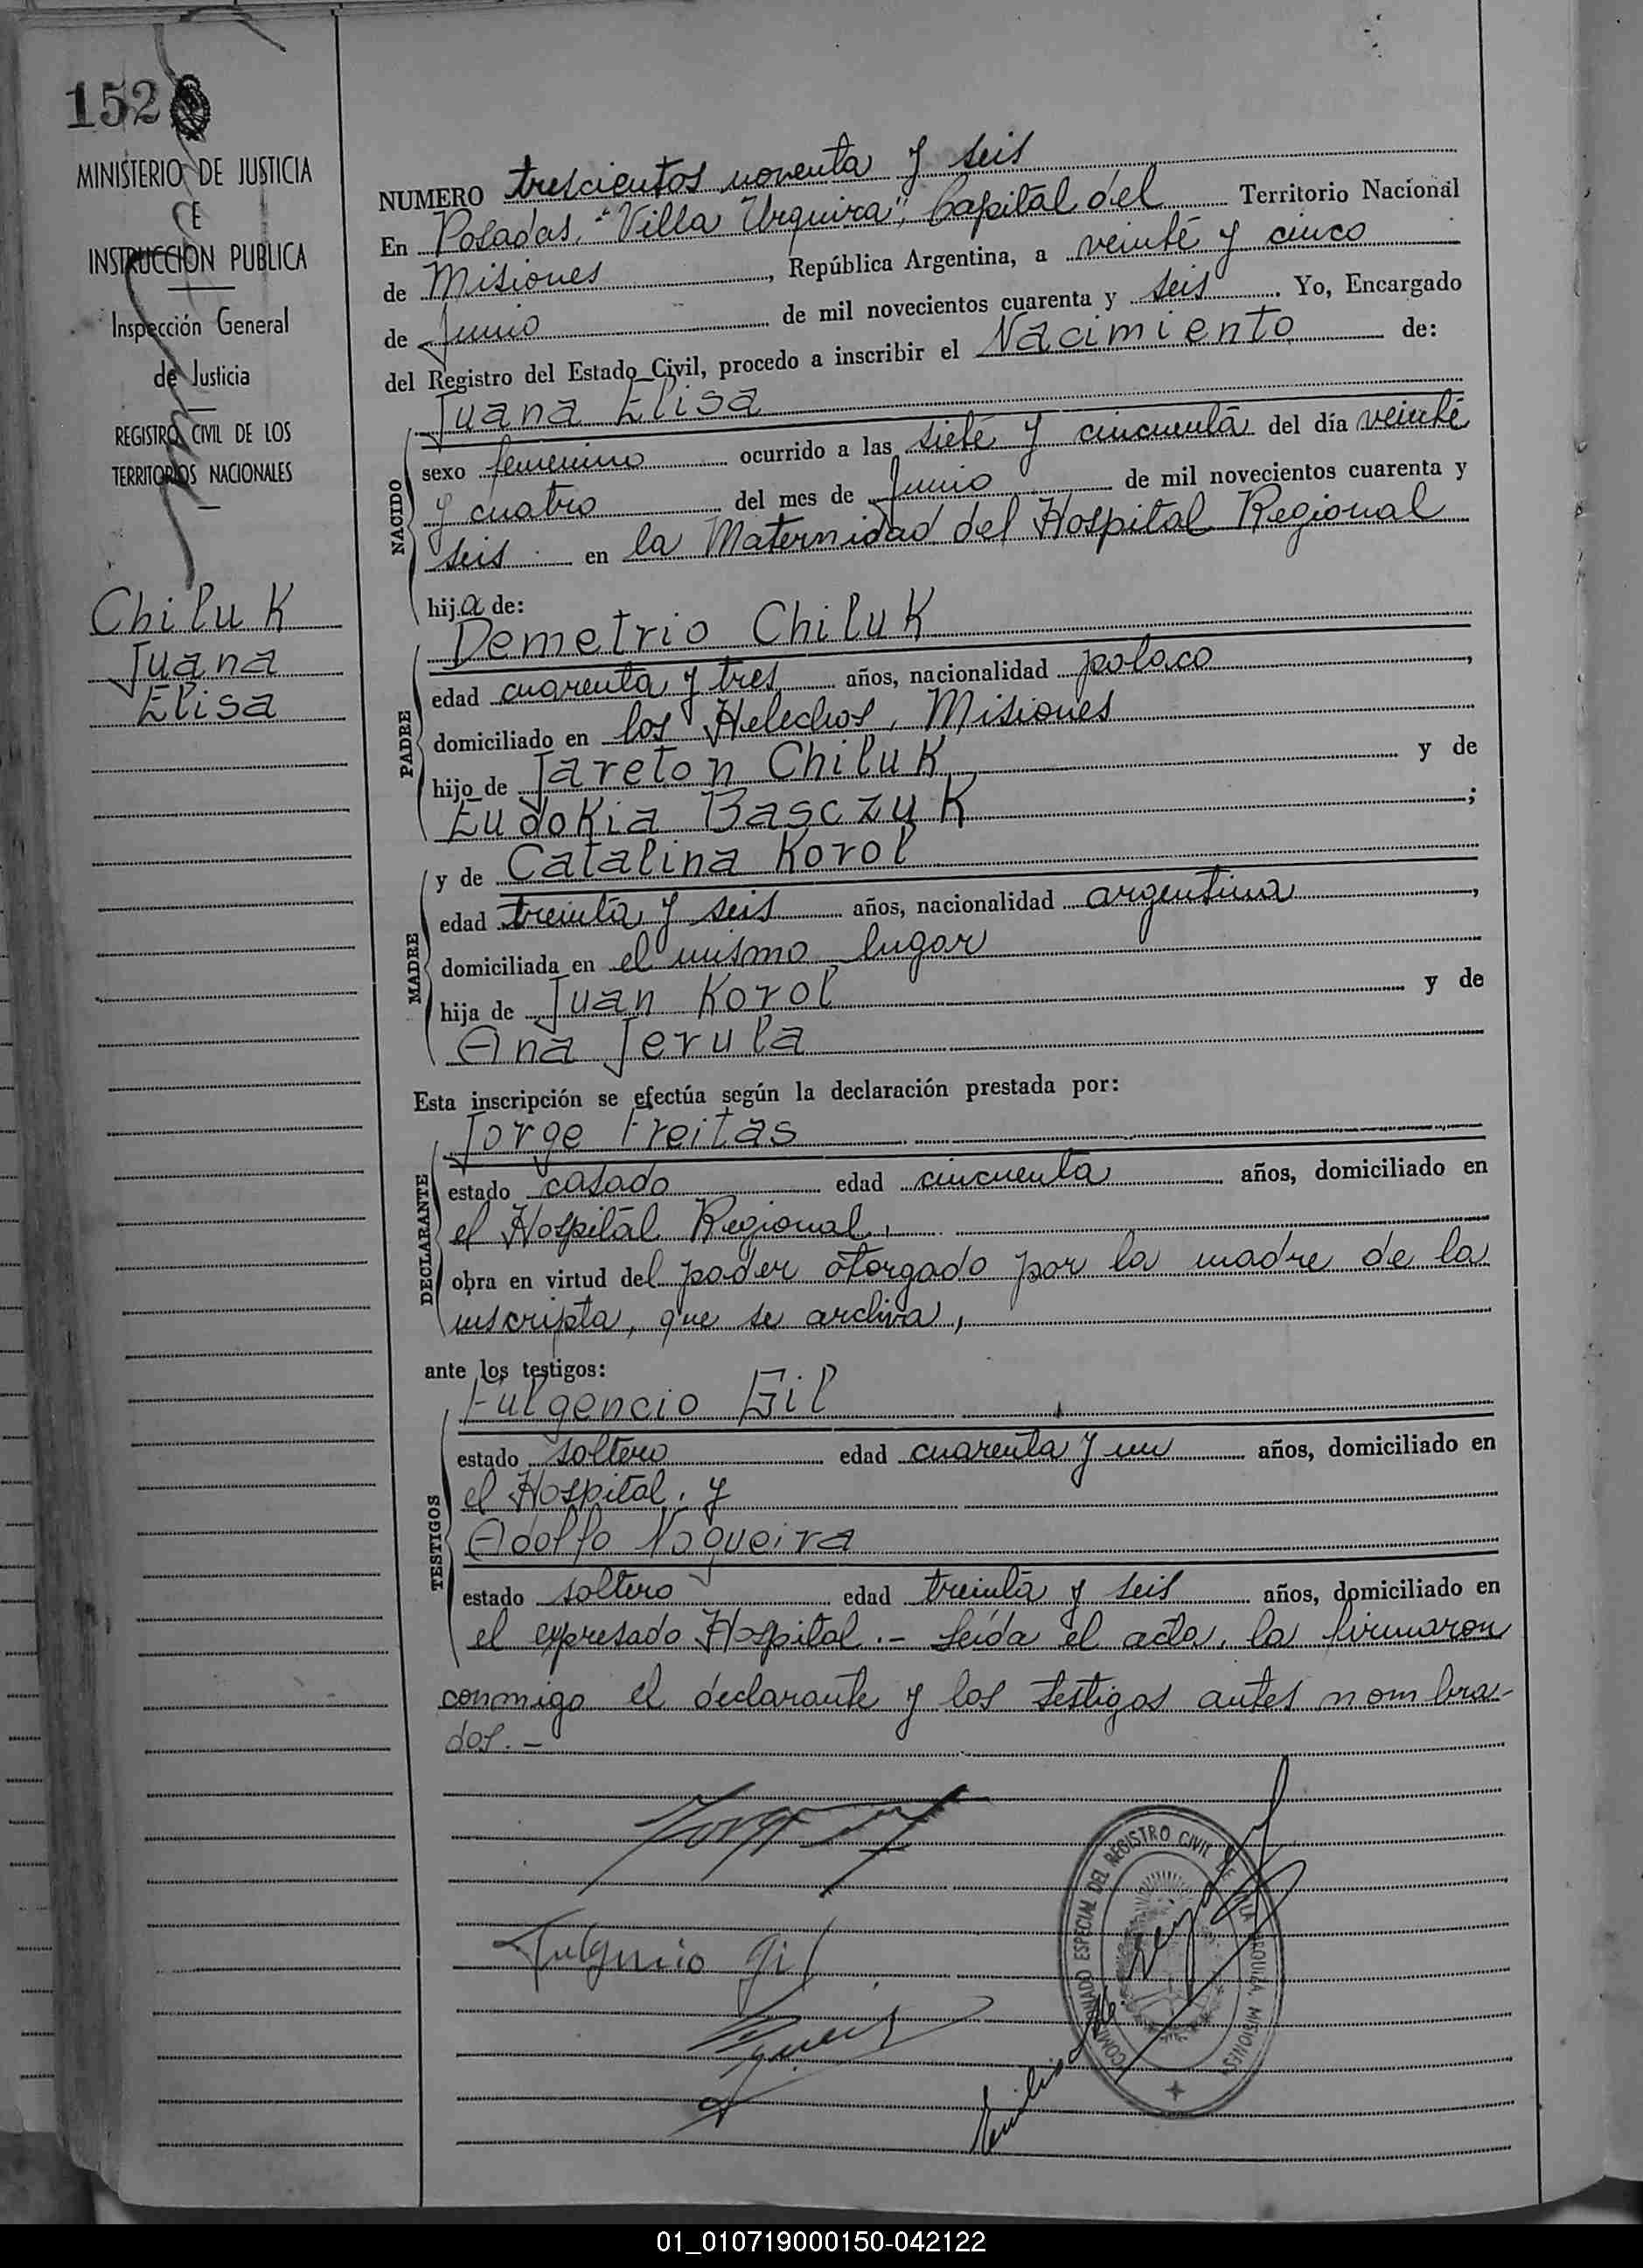 152
MINISTERIO DE JUSTICIA
E
INSTRUCCION PUBLICA
Inspección General
de Justicia
REGISTRO CIVIL DE LOS
TERRITORIOS NACIONALES
Chiluk
Juana
Elisa
NUMERO trescientos noventa y seis
En Posadas, "Villa Urquiza", Capital del Territorio Nacional
de Misiones, República Argentina, a veinte y cinco
de Junio de mil novecientos cuarenta y seis. Yo, Encargado
del Registro del Estado Civil, procedo a inscribir el Nacimiento de:
Juana Elisa
NACIDO
sexo femenino ocurrido a las siete y cincuenta del día veinte
y cuatro del mes de Junio de mil novecientos cuarenta y
seis en la Maternidad del Hospital Regional
hija de:
Demetrio Chiluk
PADRE
edad cuarenta y tres años, nacionalidad polaco,
domiciliado en los Helechos, Misiones
hijo de Jareton Chiluk y de
Eudokia Basczuk;
y de Catalina Korol
MADRE
edad treinta y seis años, nacionalidad argentina,
domiciliada en el mismo lugar
hija de Juan Korol y de
Ana Jerula
Esta inscripción se efectúa según la declaración prestada por:
Jorge Freitas
DECLARANTE
estado casado edad cincuenta años, domiciliado en
el Hospital Regional,
obra en virtud del poder otorgado por la madre de la
inscripta, que se archiva,
ante los testigos:
Fulgencio Gil
TESTIGOS
estado soltero edad cuarenta y un años, domiciliado en
el Hospital, y
Adolfo Nogueira
estado soltero edad treinta y seis años, domiciliado en
el expresado Hospital.- Leída el acta, la firmaron
conmigo el declarante y los testigos antes nombra-
dos.-
Fulgencio Gil
COMISIONADO ESPECIAL DEL REGISTRO CIVIL DE VILLA URQUIZA, MISIONES
01_010719000150-042122